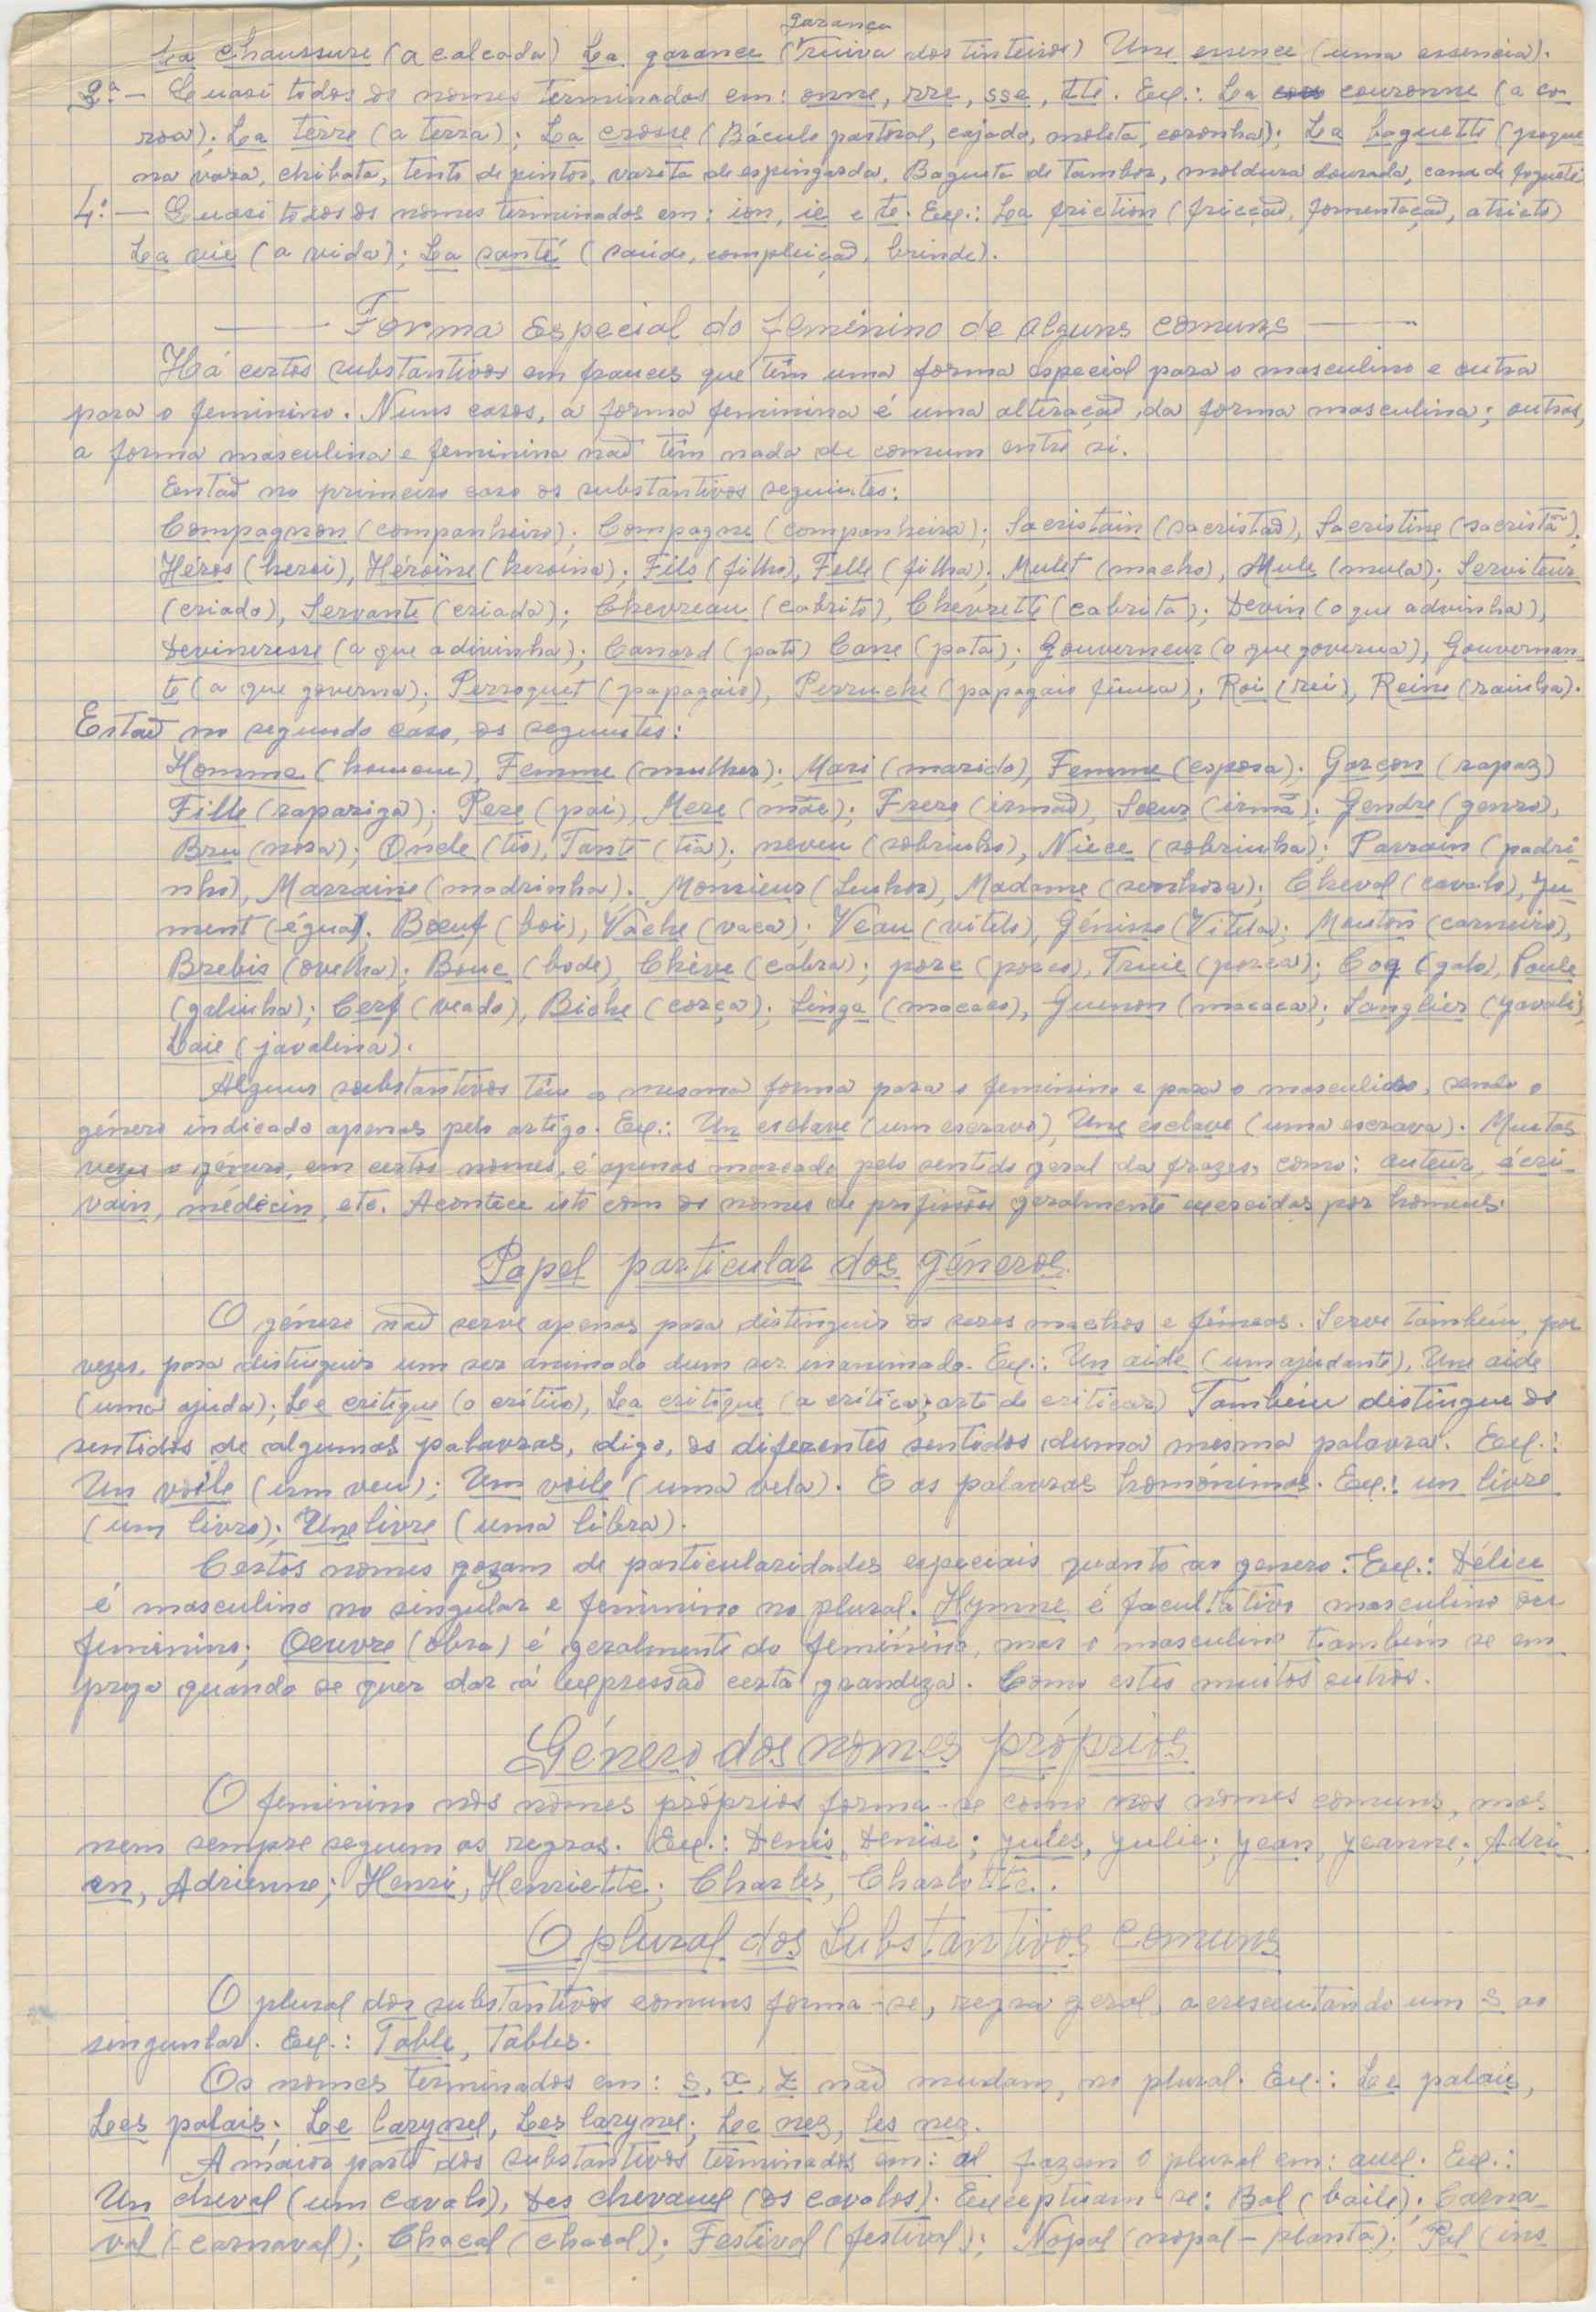 garança
La chaussure (a calçada) La garance (ruiva dos tinteiros) Une essence (uma essencia).
3.ª — Quasi todos os nomes terminados em: onne, rre, sse, tte. Ex.: La couronne (a co-
roa); La terre (a terra); La crosse (Báculo pastoral, cajado, moleta, coronha); La baguette (peque
na vara, chibata, tento de pintor, vareta de espingarda, Baqueta de tambor, moldura dourada, cana de foguete
4.ª — Quasi todos os nomes terminados em: ion, ie e te. Ex.: La friction (fricção, fomentação, atrito)
La vie (a vida); La santé (saúde, compleição, brinde).
— Forma Especial do feminino de alguns comuns —
Há certos substantivos em frances que têm uma forma especial para o masculino e outra
para o feminino. Nuns casos, a forma feminina é uma alteração da forma masculina; outros,
a forma masculina e feminina não têm nada de comum entre si.
Estão no primeiro caso os substantivos seguintes:
Compagnon (companheiro); Compagne (companheira); Sacristain (sacristão), Sacristine (sacristã);
Héros (heroi), Héroïne (heroina); Fils (filho), Felle (filha); Mulet (macho), Mule (mula); Serviteur
(criado), Servante (criada); Chevreau (cabrito), Chevrette (cabrita); Devin (o que advinha),
Devineresse (a que adivinha); Canard (pato) Cane (pata); Gouverneur (o que governa), Gouvernan-
te (a que governa); Perroquet (papagaio), Perruche (papagaio fêmea); Roi (rei), Reine (rainha).
Estão no segundo caso, os seguintes:
Homme (homem), Femme (mulher); Mari (marido), Femme (esposa); Garçon (rapaz)
Fille (rapariga); Pere (pai), Mere (mãe); Frere (irmão), Soeur (irmã); Gendre (genro),
Bru (nora); Oncle (tio), Tante (tia); neveu (sobrinho), Niece (sobrinha); Parrain (padri-
nho), Marraine (madrinha); Monsieur (Senhor), Madame (senhora); Cheval (cavalo), Ju-
ment (égua). Boeuf (boi), Vache (vaca); Veau (vitelo), Génisse (Vitela); Mouton (carneiro),
Brebis (ovelha); Bouc (bode), Chèvre (cabra); porc (porco), Truie (porca); Coq (galo), Poule
(galinha); Cerf (veado), Biche (corça); Singe (macaco), Guenon (macaca); Sanglier (javali),
Laie (javalina).
Alguns substantivos têm a mesma forma para o feminino e para o masculino, sendo o
género indicado apenas pelo artigo. Ex.: Un esclave (um escravo), Une esclave (uma escrava). Muitas
vezes o género, em certos nomes, é apenas marcado pelo sentido geral da frazes, como: auteur, écri-
vain, médecin, etc. Acontece isto com os nomes de profissões geralmente exercidas por homens.
Papel particular dos géneros
O género não serve apenas para distinguir os seres machos e fêmeas. Serve também, por
vezes, para distinguir um ser animado dum ser inanimado. Ex.: Un aide (um ajudante), Une aide
(uma ajuda); Le critique (o crítico), La critique (a crítica; arte de criticar) Também distingue os
sentidos de algumas palavras, digo, os diferentes sentidos duma mesma palavra. Ex.:
Un voile (um veu); Um voile (uma vela). E as palavras homónimas. Ex.: un livre
(um livro); Une livre (uma libra).
Certos nomes gozam de particularidades especiais quanto ao genero. Ex.: Délice
é masculino no singular e feminino no plural. Hymne é facultativo masculino ou
feminino; Oeuvre (obra) é geralmente do feminino, mas o masculino também se em
prega quando se quer dar á expressão certa grandeza. Como estes muitos outros.
Género dos nomes próprios
O feminino nos nomes próprios forma-se como nos nomes comuns, mas
nem sempre seguem as regras. Ex.: Denis, Denise; Jules, Julie; Jean, Jeanne; Adri
en, Adrienne; Henri, Henriette; Charles, Charlotte.
O plural dos Substantivos comuns
O plural dos substantivos comuns forma-se, regra geral, acrescentando um s ao
singunlar. Ex.: Table, Tables.
Os nomes terminados em: s, x, z não mudam, no plural. Ex.: Le palais,
Les palais; Le larynx, Les larynx; Le nez, les nez.
A maior parte dos substantivos terminados em: al fazem o plural em: aux. Ex.:
Un cheval (um cavalo), Des chevaux (os cavalos). Exceptuam-se: Bal (baile); Carna-
val (carnaval); Chacal (chacal); Festival (festival); Nopal (nopal - planta); Pal (ins